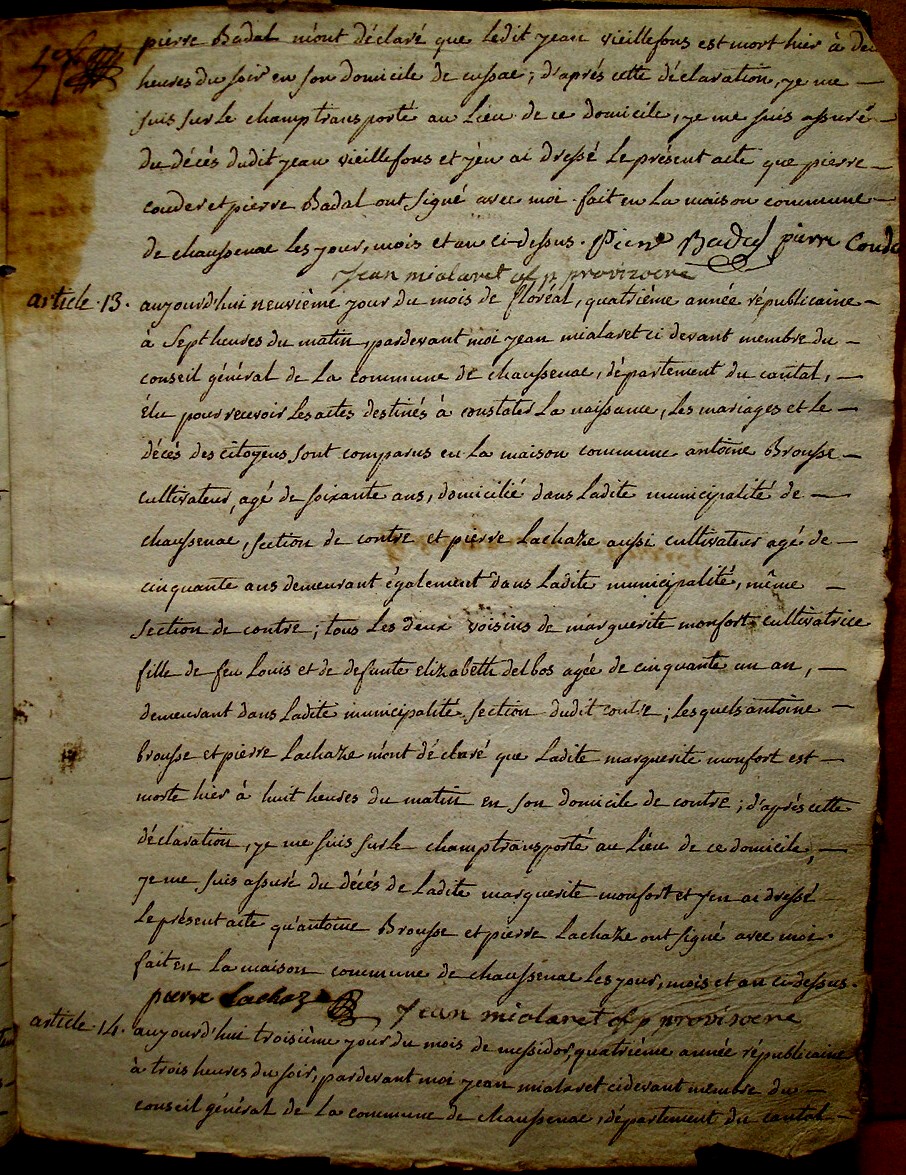 pierre Badal m'ont déclaré que ledit jean vieillefons est mort hier à
heures du soir en son domicile de cussac; d'aprés cette déclaration, je me
suis sur le champ transporté au Lieu de ce domicile, je me suis assuré
du décés dudit jean vieillefons et j'en ai dressé Le présent acte que pierre
couder et pierre Badal ont signé avec moi. fait en La maison commune
de chaussenac les jour, mois et an ci-dessus. Pierre Badal pierre
jean mialaret of p provizoere
article 13. aujourd'hui neuvième jour du mois de floréal, quatrième année républicaine
à Sept heures du matin, pardevant moi jean mialaret ci devant membre du
conseil général de La commune de chaussenac, département du cantal,
élu pour recevoir Les actes destinés à constater La naissance, Les mariages et Le
décés des citoyens sont comparus en La maison commune antoine Brousse
cultivateur, agé de soixante ans, domicilié dans Ladite municipalité de
chaussenac, section de contre et pierre Lachaze aussi cultivateur agé de
cinquante ans demeurant également dans Ladite municipalité, même
section de contre; tous Les deux voisins de marguerite monfort cultivatrice
fille de feu Louis et de defunte elizabeth delbos agée de cinquante un an,
demeurant dans Ladite municipalité section dudit contre; Lesquels antoine
brousse et pierre Lachaze m'ont déclaré que Ladite marguerite monfort est
morte hier à huit heures du matin en son domicile de contre; d'aprés cette
déclaration, je me suis sur le champ transporté au Lieu de ce domicile,
je me suis assuré du décés de Ladite marguerite monfort et j'en ai dressé
Le présent acte qu'antoine Brousse et pierre Lachaze ont signé avec moi.
fait en La maison commune de chaussenac Les jour, mois et an ci dessus.
pierre Lachaze jean mialaret of p provizoere
article 14. aujourd'hui troisième jour du mois de messidor, quatrième année républicaine
à trois heures du soir, pardevant moi jean mialaret ci devant membre du
conseil général de La commune de chaussenac, département du cantal